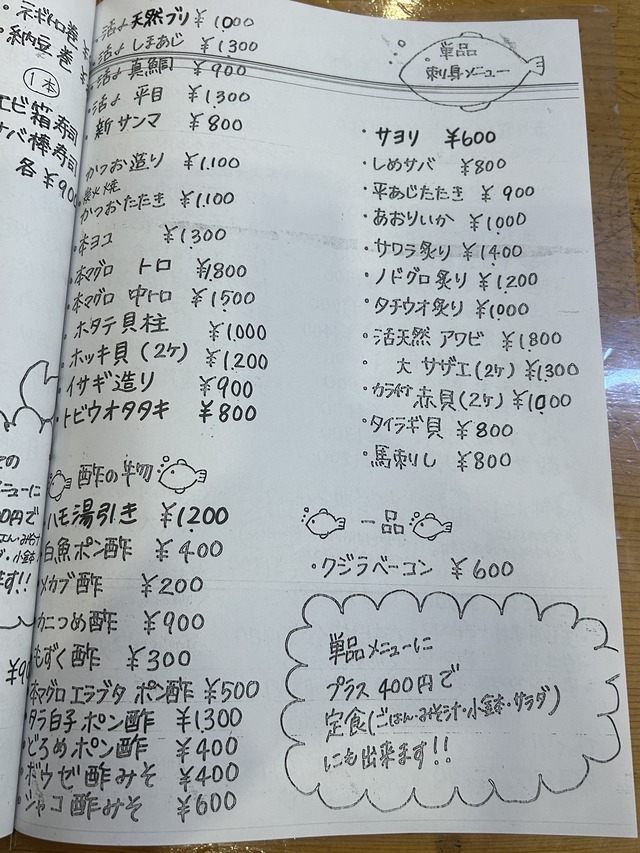 ・ネギトロ巻
・納豆巻
1本
エビ箱寿司
サバ棒寿司
各¥90
単品
刺身メニュー
・活〆天然ブリ ¥1000
・活〆しまあじ ¥1300
・活〆真鯛 ¥900
・活〆平目 ¥1300
・新サンマ ¥800
かつお造り ¥1,100
炭火焼
かつおたたき ¥1,100
・本ヨコ ¥1300
・本マグロ トロ ¥1,800
・本マグロ 中トロ ¥1500
・ホタテ貝柱 ¥1,000
・ホッキ貝(2ケ) ¥1,200
・イサギ造り ¥900
・トビウオタタキ ¥800
酢の物
・ハモ湯引き ¥1,200
白魚ポン酢 ¥400
メカブ酢 ¥200
カニつめ酢 ¥900
もずく酢 ¥300
本マグロエラブタ ポン酢 ¥500
・タラ白子ポン酢 ¥1,300
・どろめポン酢 ¥400
・ボウゼ酢みそ ¥400
・ジャコ酢みそ ¥600
・サヨリ ¥600
・しめサバ ¥800
・平あじたたき ¥900
・あおりいか ¥1,000
・サワラ炙り ¥1400
・ノドグロ炙り ¥1,200
・タチウオ炙り ¥1,000
・活天然 アワビ ¥1,800
・大 サザエ(2ケ) ¥1,300
・カラ付 赤貝(2ケ) ¥1000
・タイラギ貝 ¥800
・馬刺し ¥800
一品
・クジラベーコン ¥600
単品メニューに
プラス400円で
定食(ごはん・みそ汁・小鉢・サラダ)
にも出来ます!!